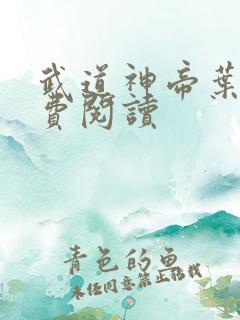 武道神帝葉
費閱讀
青色的魚
未經同意禁止轉載